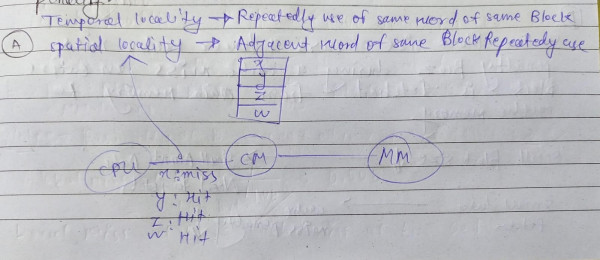 Temporal locality → Repeatedly use of same word of same Block
A spatial locality → Adjacent word of same Block Repeatedly use
x
y
z
w
CPU CM MM
x : miss
y : Hit
z : Hit
w Hit